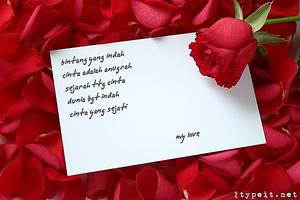 bintang yang indah
cinta adalah anugrah
sejarah ttg cinta
dunia byt indah
cinta yang sejati
my love
ltypeit.net